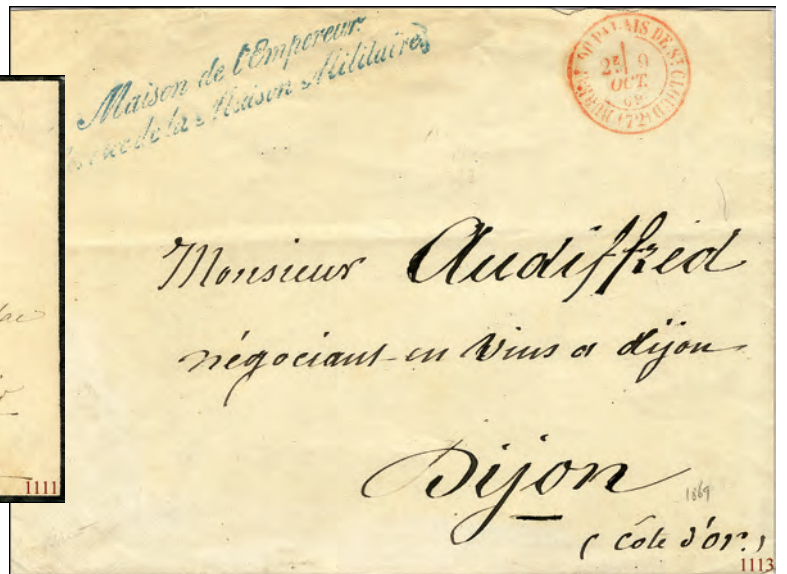 Maison de l'Empereur.
de la Maison Militaire
BUREAU DU PALAIS DE ST CLOUD (72)
2E 9
OCT.
69
Monsieur Audiffred
négociant en vins a dijon
Dijon
1869
( Côte d'or.)
1111
1113